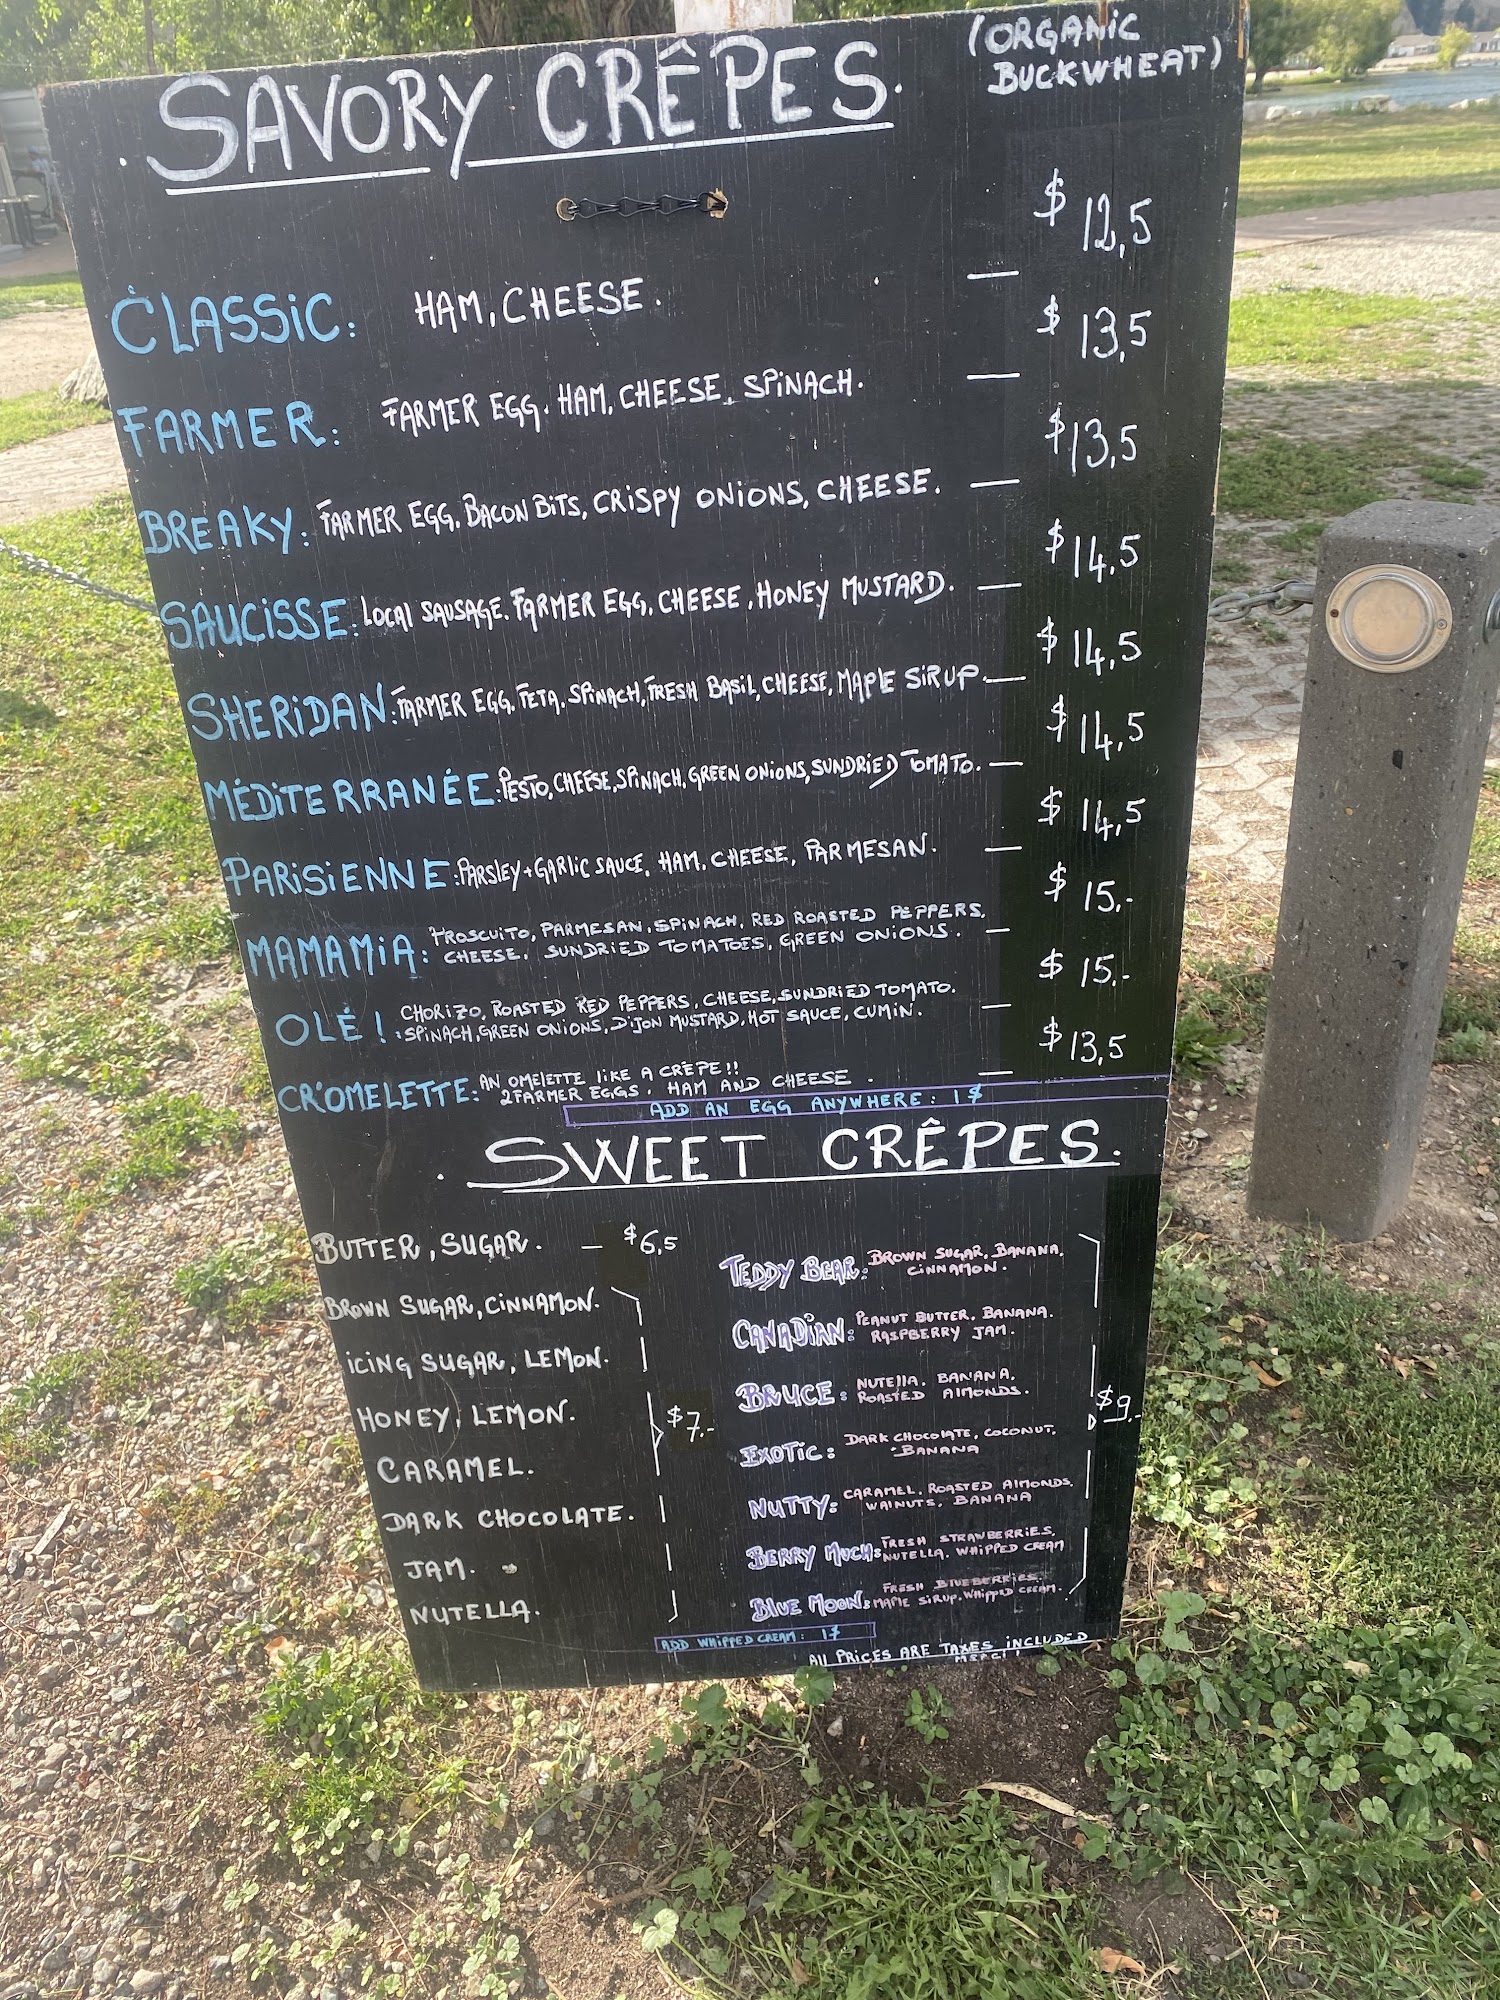 . SAVORY CRÊPES. (ORGANIC
BUCKWHEAT)
CLASSIC: HAM, CHEESE. — $12,5
FARMER: FARMER EGG. HAM, CHEESE, SPINACH. — $13,5
BREAKY: FARMER EGG. BACON BITS, CRISPY ONIONS, CHEESE. — $13,5
SAUCISSE: LOCAL SAUSAGE. FARMER EGG, CHEESE, HONEY MUSTARD. — $14,5
SHERIDAN: FARMER EGG. FETA. SPINACH, FRESH BASIL, CHEESE, MAPLE SIRUP. — $14,5
MÉDITERRANÉE: PESTO, CHEESE, SPINACH, GREEN ONIONS, SUNDRIED TOMATO. — $14,5
PARISIENNE: PARSLEY + GARLIC SAUCE, HAM, CHEESE, PARMESAN. — $14,5
MAMAMIA: PROSCUITO, PARMESAN, SPINACH, RED ROASTED PEPPERS,
CHEESE, SUNDRIED TOMATOES, GREEN ONIONS. — $15.-
OLÉ !: CHORIZO, ROASTED RED PEPPERS, CHEESE, SUNDRIED TOMATO.
SPINACH, GREEN ONIONS, D'IJON MUSTARD, HOT SAUCE, CUMIN. — $15.-
CR'OMELETTE: AN OMELETTE LIKE A CRÊPE!!
2 FARMER EGGS. HAM AND CHEESE. — $13,5
ADD AN EGG ANYWHERE: 1$
. SWEET CRÊPES.
BUTTER, SUGAR. — $6,5
BROWN SUGAR, CINNAMON.
ICING SUGAR, LEMON.
HONEY, LEMON.
CARAMEL.
DARK CHOCOLATE.
JAM.
NUTELLA.
$7.-
TEDDY BEAR: BROWN SUGAR, BANANA,
CINNAMON.
CANADIAN: PEANUT BUTTER, BANANA.
RASPBERRY JAM.
BRUCE: NUTELLA. BANANA,
ROASTED ALMONDS.
EXOTIC: DARK CHOCOLATE, COCONUT,
BANANA
NUTTY: CARAMEL. ROASTED ALMONDS.
WALNUTS, BANANA
BERRY MUCH: FRESH STRAWBERRIES,
NUTELLA. WHIPPED CREAM
BLUE MOON: FRESH BLUEBERRIES.
MAPLE SIRUP. WHIPPED CREAM.
$9.-
ADD WHIPPED CREAM: 1$
ALL PRICES ARE TAXES INCLUDED
MERCI!